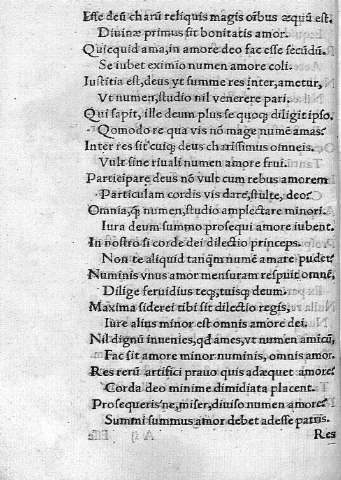 Esse deũ charũ reliquis magis oĩbus æquũ est.
Diuinæ primus sit bonitatis amor.
Quicquid ama, in amore deo fac esse secũdũ.
Se iubet eximio numen amore coli.
Iustitia est, deus yt summe res inter, ametur,
Vt numen, studio nil venerere pari.
Qui sapit, ille deum plus se quoq; diligit ipso.
Qomodo re qua vis nõ mage numẽ amas?
Inter res sit cuiq; deus charissimus omneis.
Vult sine riuali numen amore frui.
Participare deus nõ vult cum rebus amorem
Particulam cordis vis dare, stulte, deo?
Omnia, q̃ numen, studio amplectare minori.
Iura deum summo prosequi amore iubent.
In nostro si corde dei dilectio princeps.
Non te aliquid tanq̃m numẽ amare pudet?
Numinis vnus amor mensuram respuit omnẽ,
Dilige feruidius teq;, tuisq; deum.
Maxima siderei tibi sit dilectio regis,
Iure alius minor est omnis amore dei.
Nil dignũ inuenies, qđ ames, vt numen amicũ,
Fac sit amore minor numinis, omnis amor.
Res rerũ artifici prauo quis adæquet amore?
Corda deo minime dimidiata placent.
Prosequeris ne, miser, diuiso numen amore?
Summi summus amor debet adesse patris.
Res